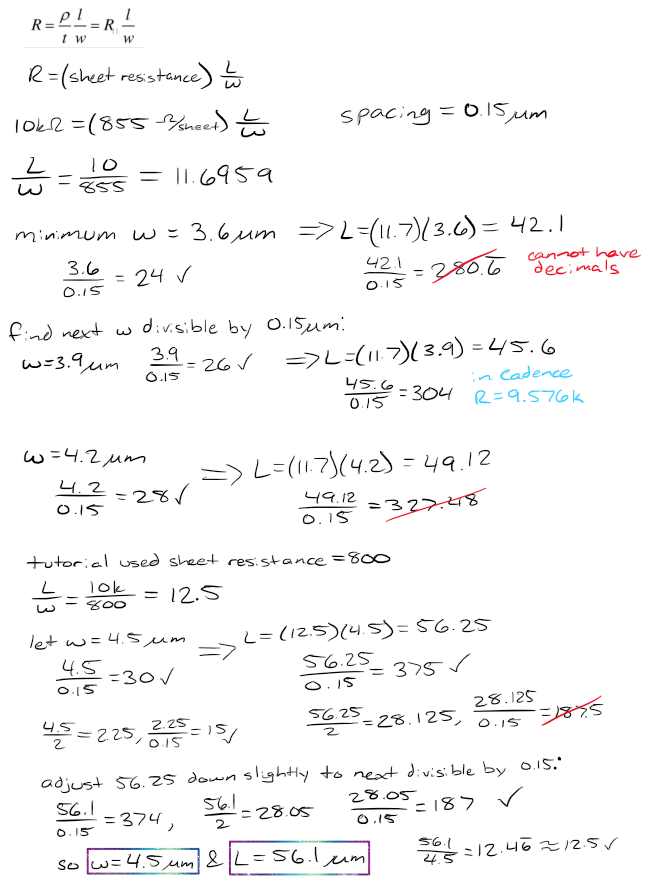 R = ρ/t l/w = R□ l/w
R = (sheet resistance) L/W
10kΩ = (855 Ω/sheet) L/W
spacing = 0.15 μm
L/W = 10/855 = 11.6959
minimum w = 3.6 μm => L = (11.7)(3.6) = 42.1
3.6/0.15 = 24 ✓
42.1/0.15 = 280.6̅ cannot have decimals
find next w divisible by 0.15μm:
w = 3.9 μm 3.9/0.15 = 26 ✓ => L = (11.7)(3.9) = 45.6
45.6/0.15 = 304 in Cadence R = 9.576k
w = 4.2 μm => L = (11.7)(4.2) = 49.12
4.2/0.15 = 28 ✓
49.12/0.15 = 327.48
tutorial used sheet resistance = 800
L/W = 10k/800 = 12.5
let w = 4.5 μm => L = (12.5)(4.5) = 56.25
4.5/0.15 = 30 ✓
56.25/0.15 = 375 ✓
4.5/2 = 2.25, 2.25/0.15 = 15 ✓
56.25/2 = 28.125, 28.125/0.15 = 187.5
adjust 56.25 down slightly to next divisible by 0.15:
56.1/0.15 = 374, 56.1/2 = 28.05 28.05/0.15 = 187 ✓
so w = 4.5 μm & L = 56.1 μm
56.1/4.5 = 12.46̅ ≈ 12.5 ✓